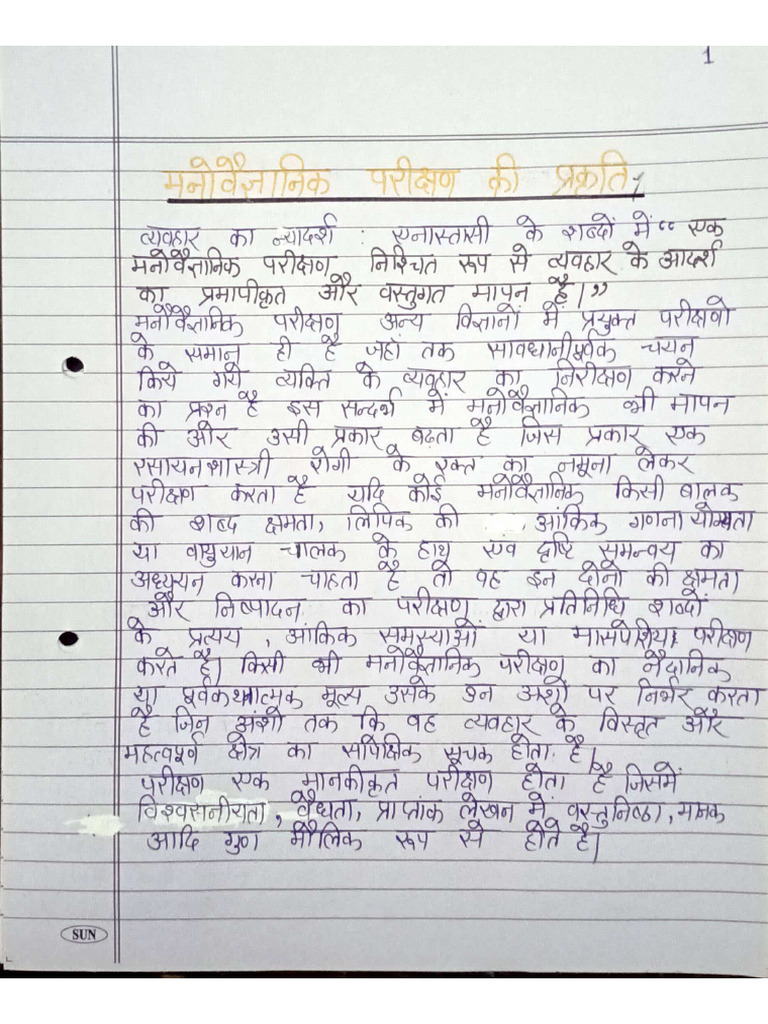 1
मनोवैज्ञानिक परीक्षण की प्रकृति,
व्यवहार का न्यादर्श : एनास्तासी के शब्दों में “ एक
मनोवैज्ञानिक परीक्षण निश्चित रूप से व्यवहार के आदर्श
का प्रमापीकृत और वस्तुगत मापन है।”
मनोवैज्ञानिक परीक्षण अन्य विज्ञानों में प्रयुक्त परीक्षणो
के समान ही है जहां तक सावधानीपूर्वक चयन
किये गये व्यक्ति के व्यवहार का निरीक्षण करने
का प्रश्न है इस सन्दर्भ में मनोवैज्ञानिक भी मापन
की और उसी प्रकार बढ़ता है जिस प्रकार एक
रसायनशास्त्री रोगी के रक्त का नमूना लेकर
परीक्षण करता है यदि कोई मनोवैज्ञानिक किसी बालक
की शब्द क्षमता, लिपिक की , आंकिक गणना योग्यता
या वायुयान चालक के हाथ एंव दृष्टि समन्वय का
अध्ययन करना चाहता है तो वह इन दोनो की क्षमता
और निष्पादन का परीक्षण द्वारा प्रतिनिधि शब्दों
के प्रत्यय , आंकिक समस्याओं या मासपेशिय परीक्षण
करते है। किसी भी मनोवैज्ञानिक परीक्षण का नैदानिक
या पूर्वकथनात्मक मूल्य उसके उन अशों पर निर्भर करता
है जिन अंशो तक कि वह व्यवहार के विस्तृत और
महत्वपूर्ण क्षेत्र का सपिक्षिक सूचक होता है।
परीक्षण एक मानकीकृत परीक्षण होता है जिसमें
विश्वसनीयता , वैधता, प्राप्तांक लेखन में वस्तुनिष्ठा , मानक
आदि गुण मौलिक रूप से होते है।
SUN